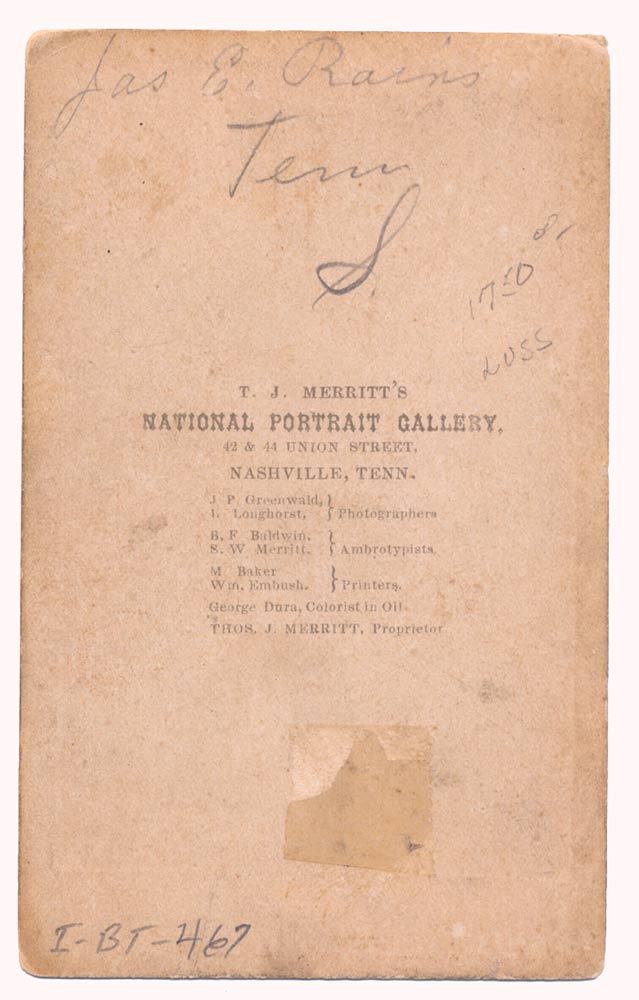 Jas E. Rains
Tenn
S.
81
17 50
LUSS
T. J. MERRITT'S
NATIONAL PORTRAIT GALLERY,
42 & 44 UNION STREET,
NASHVILLE, TENN.
J P Greenwald, }
I. Longhorst, } Photographers
B. F. Baldwin, }
S. W Merritt. } Ambrotypists.
M Baker }
Wm. Embush. } Printers.
George Dura, Colorist in Oil.
THOS. J. MERRITT, Proprietor
I-BT-467